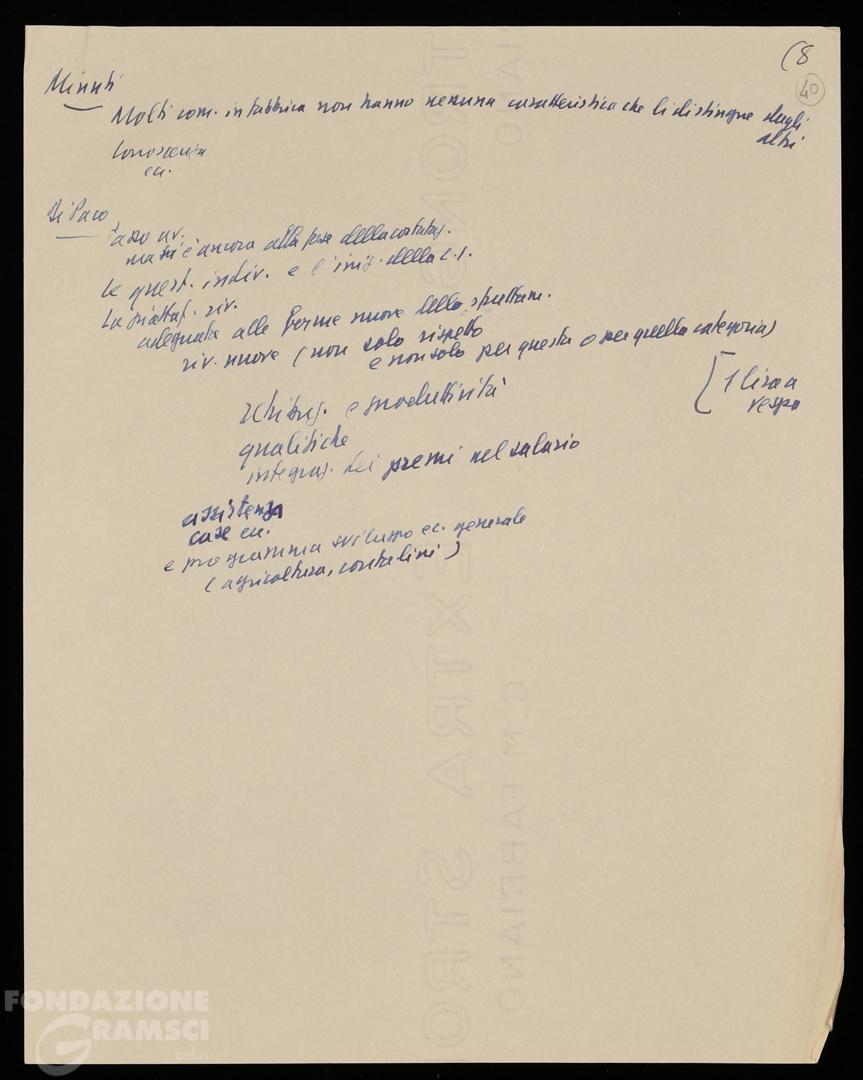 (8
40
Minuti
Molti com. in fabbrica non hanno nessuna caratteristica che li distingue dagli
altri
Conoscenza
ecc.
Di Paco
passo av.
ma si è ancora alla fase della constataz.
le quest. indiv. e l'iniz. della C.I.
La piattaf. riv.
adeguata alle forme nuove dello sfruttam.
riv. nuove (non solo rispetto
e non solo per questa o per quella categoria)
[1 lira a
vespa
retribuz. e produttività
qualifiche
integraz. dei premi nel salario
assistenza
case ecc.
e programma sviluppo ec. generale
(agricoltura,
FABRIANO
EXTRA STRO
C.M. FABRIANO
FONDAZIONE
GRAMSCI
onlus